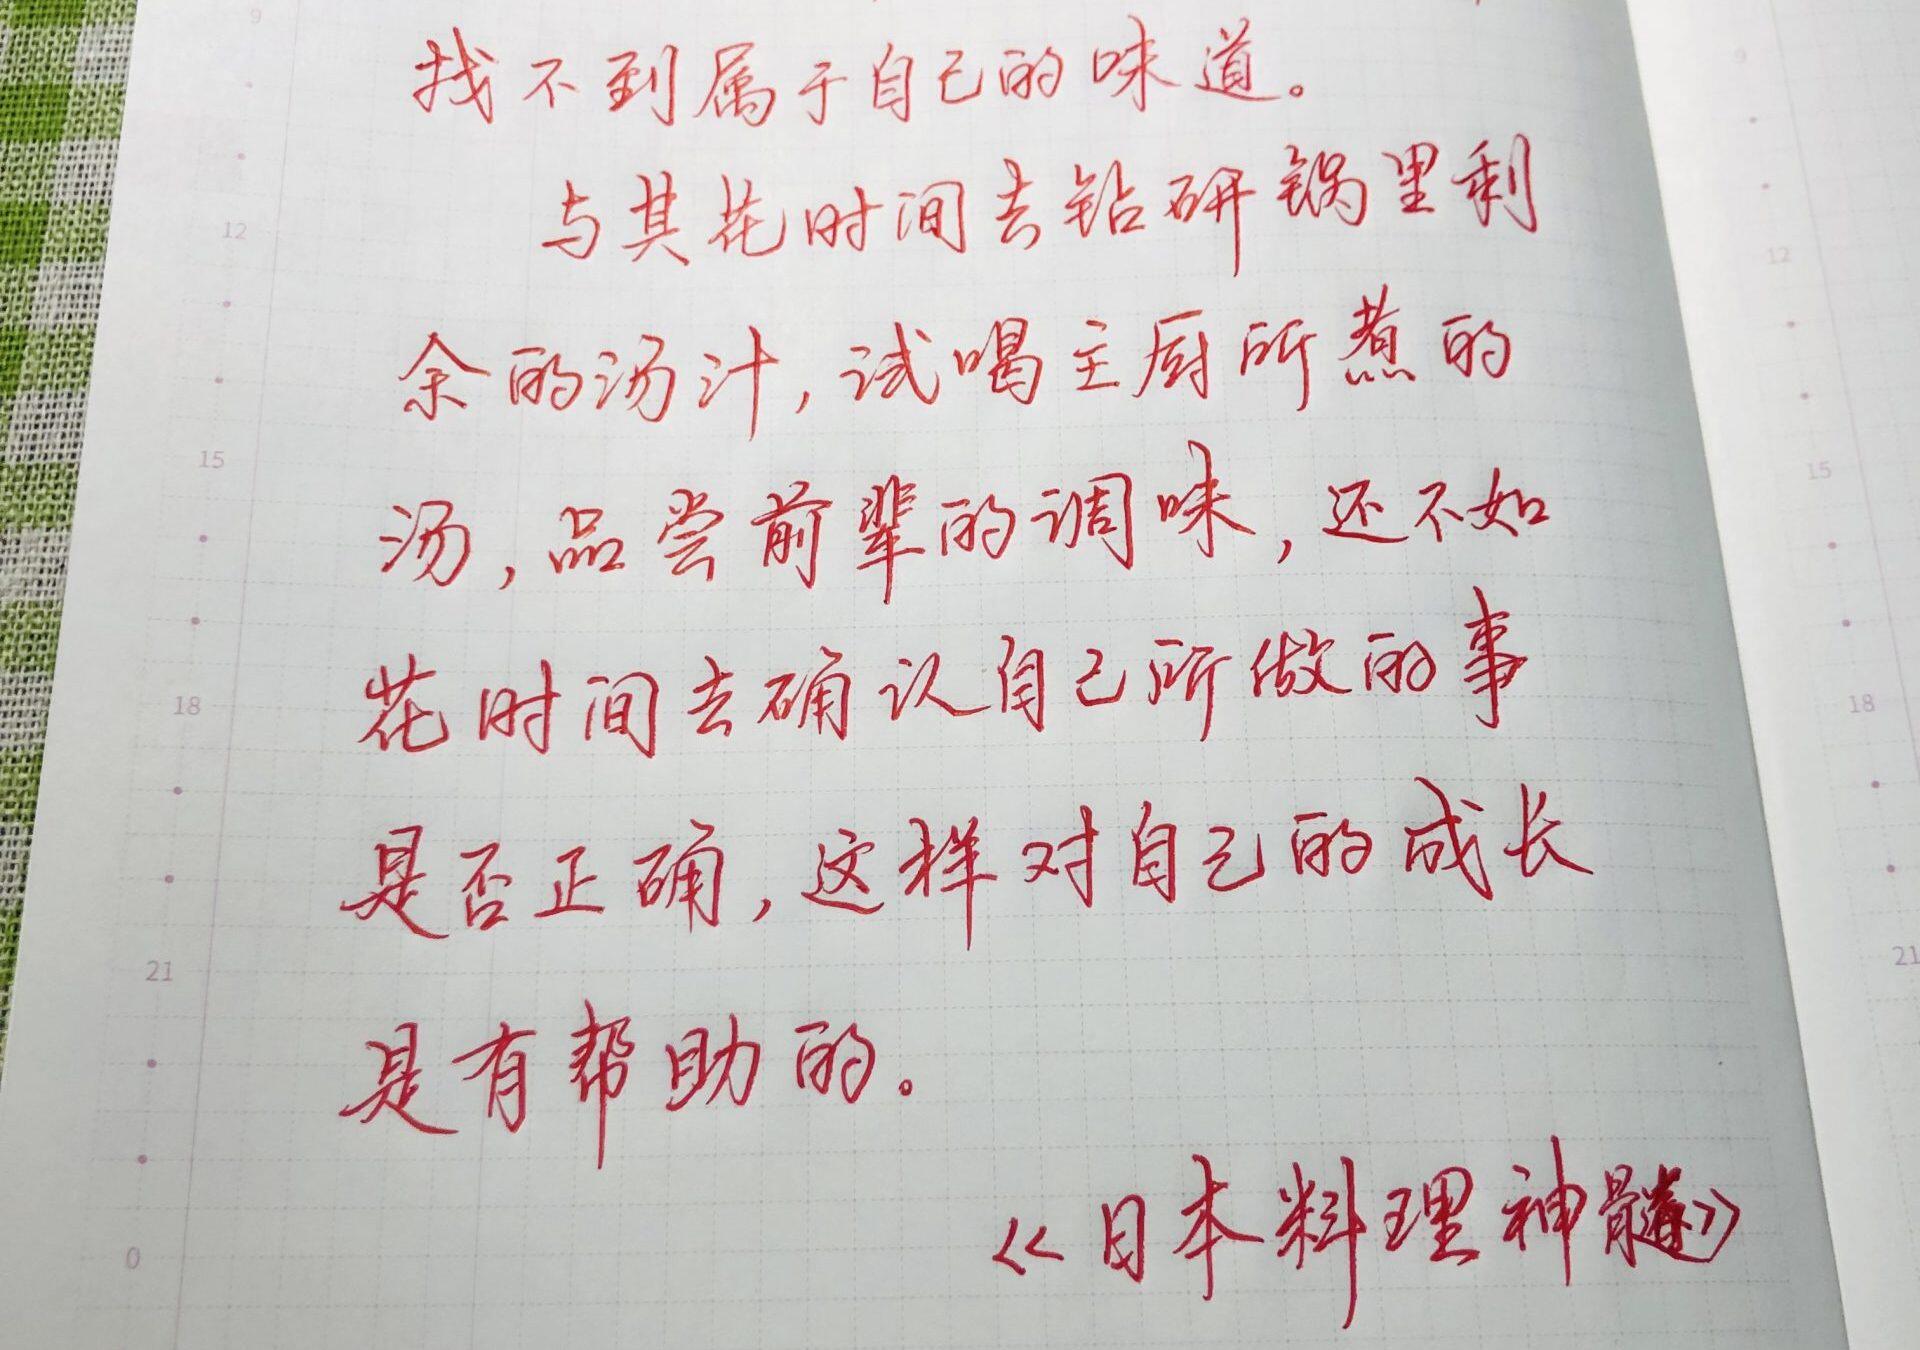 找不到属于自己的味道。
与其花时间去钻研锅里剩
余的汤汁，试喝主厨所煮的
汤，品尝前辈的调味，还不如
花时间去确认自己所做的事
是否正确，这样对自己的成长
是有帮助的。
《日本料理神髓》
9
12
15
18
21
0
9
12
15
18
21